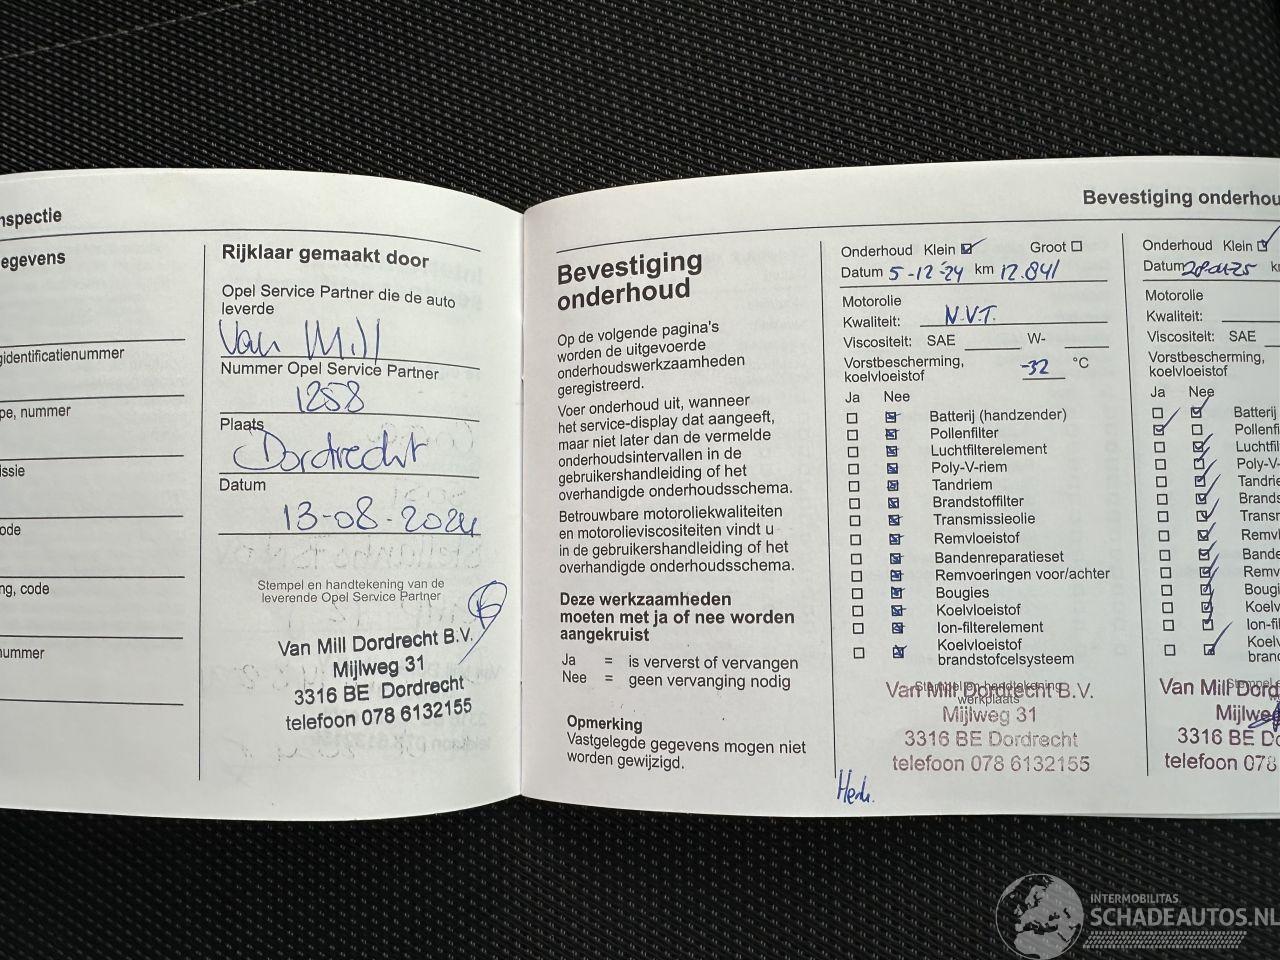 nspectie
egevens
gidentificatienummer
pe, nummer
issie
ode
ng, code
nummer
Rijklaar gemaakt door
Opel Service Partner die de auto
leverde
Van Mill
Nummer Opel Service Partner
1258
Plaats
Dordrecht
Datum
13-08-2024
Stempel en handtekening van de
leverende Opel Service Partner
Van Mill Dordrecht B.V.
Mijlweg 31
3316 BE Dordrecht
telefoon 078 6132155
Bevestiging
onderhoud
Op de volgende pagina's
worden de uitgevoerde
onderhoudswerkzaamheden
geregistreerd.
Voer onderhoud uit, wanneer
het service-display dat aangeeft,
maar niet later dan de vermelde
onderhoudsintervallen in de
gebruikershandleiding of het
overhandigde onderhoudsschema.
Betrouwbare motoroliekwaliteiten
en motorolieviscositeiten vindt u
in de gebruikershandleiding of het
overhandigde onderhoudsschema.
Deze werkzaamheden
moeten met ja of nee worden
aangekruist
Ja = is ververst of vervangen
Nee = geen vervanging nodig
Opmerking
Vastgelegde gegevens mogen niet
worden gewijzigd.
Bevestiging onderhou
Onderhoud Klein Groot
Datum 5-12-'24 km 12.841
Motorolie
Kwaliteit: N.V.T.
Viscositeit: SAE W-
Vorstbescherming,
koelvloeistof -32 °C
Ja Nee
Batterij (handzender)
Pollenfilter
Luchtfilterelement
Poly-V-riem
Tandriem
Brandstoffilter
Transmissieolie
Remvloeistof
Bandenreparatieset
Remvoeringen voor/achter
Bougies
Koelvloeistof
Ion-filterelement
Koelvloeistof
brandstofcelsysteem
Stempel en handtekening
werkplaats
Van Mill Dordrecht B.V.
Mijlweg 31
3316 BE Dordrecht
telefoon 078 6132155
Onderhoud Klein
Datum k
Motorolie
Kwaliteit:
Viscositeit: SAE
Vorstbescherming,
koelvloeistof
Ja Nee
Batteri
Pollenfi
Luchtfil
Poly-V-
Tandrie
Brands
Transm
Remvl
Bande
Remv
Bougi
Koelv
Ion-fi
Koelv
brand
Stempel
Van Mill Dord
Mijlwe
3316 BE Do
telefoon 078
INTERMOBILITAS
SCHADEAUTOS.NL